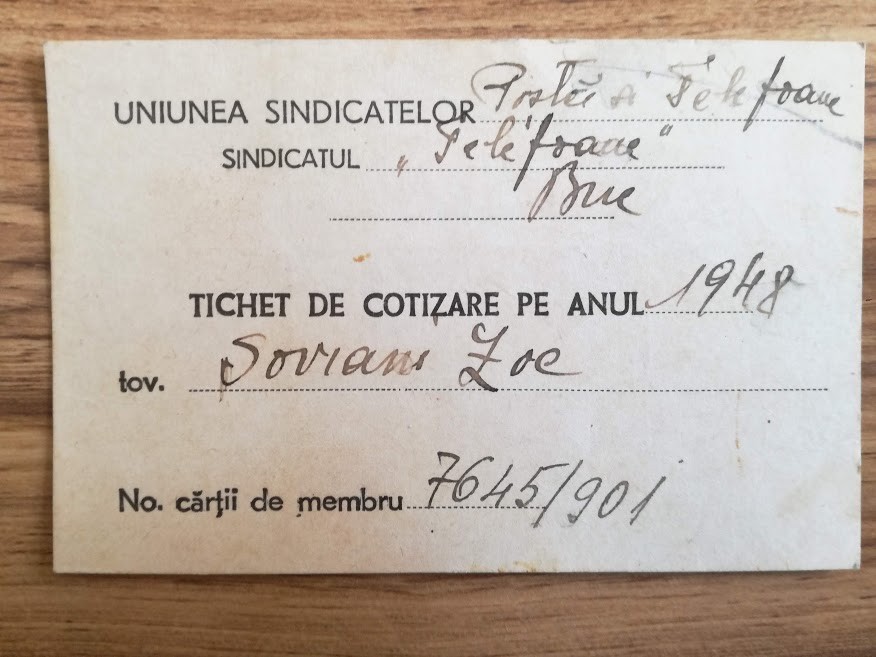 UNIUNEA SINDICATELOR Poștei si Telefoane
SINDICATUL „Telefoane"
Buc
TICHET DE COTIZARE PE ANUL 1948
tov. Zoe
No. cărții de membru 7645/901